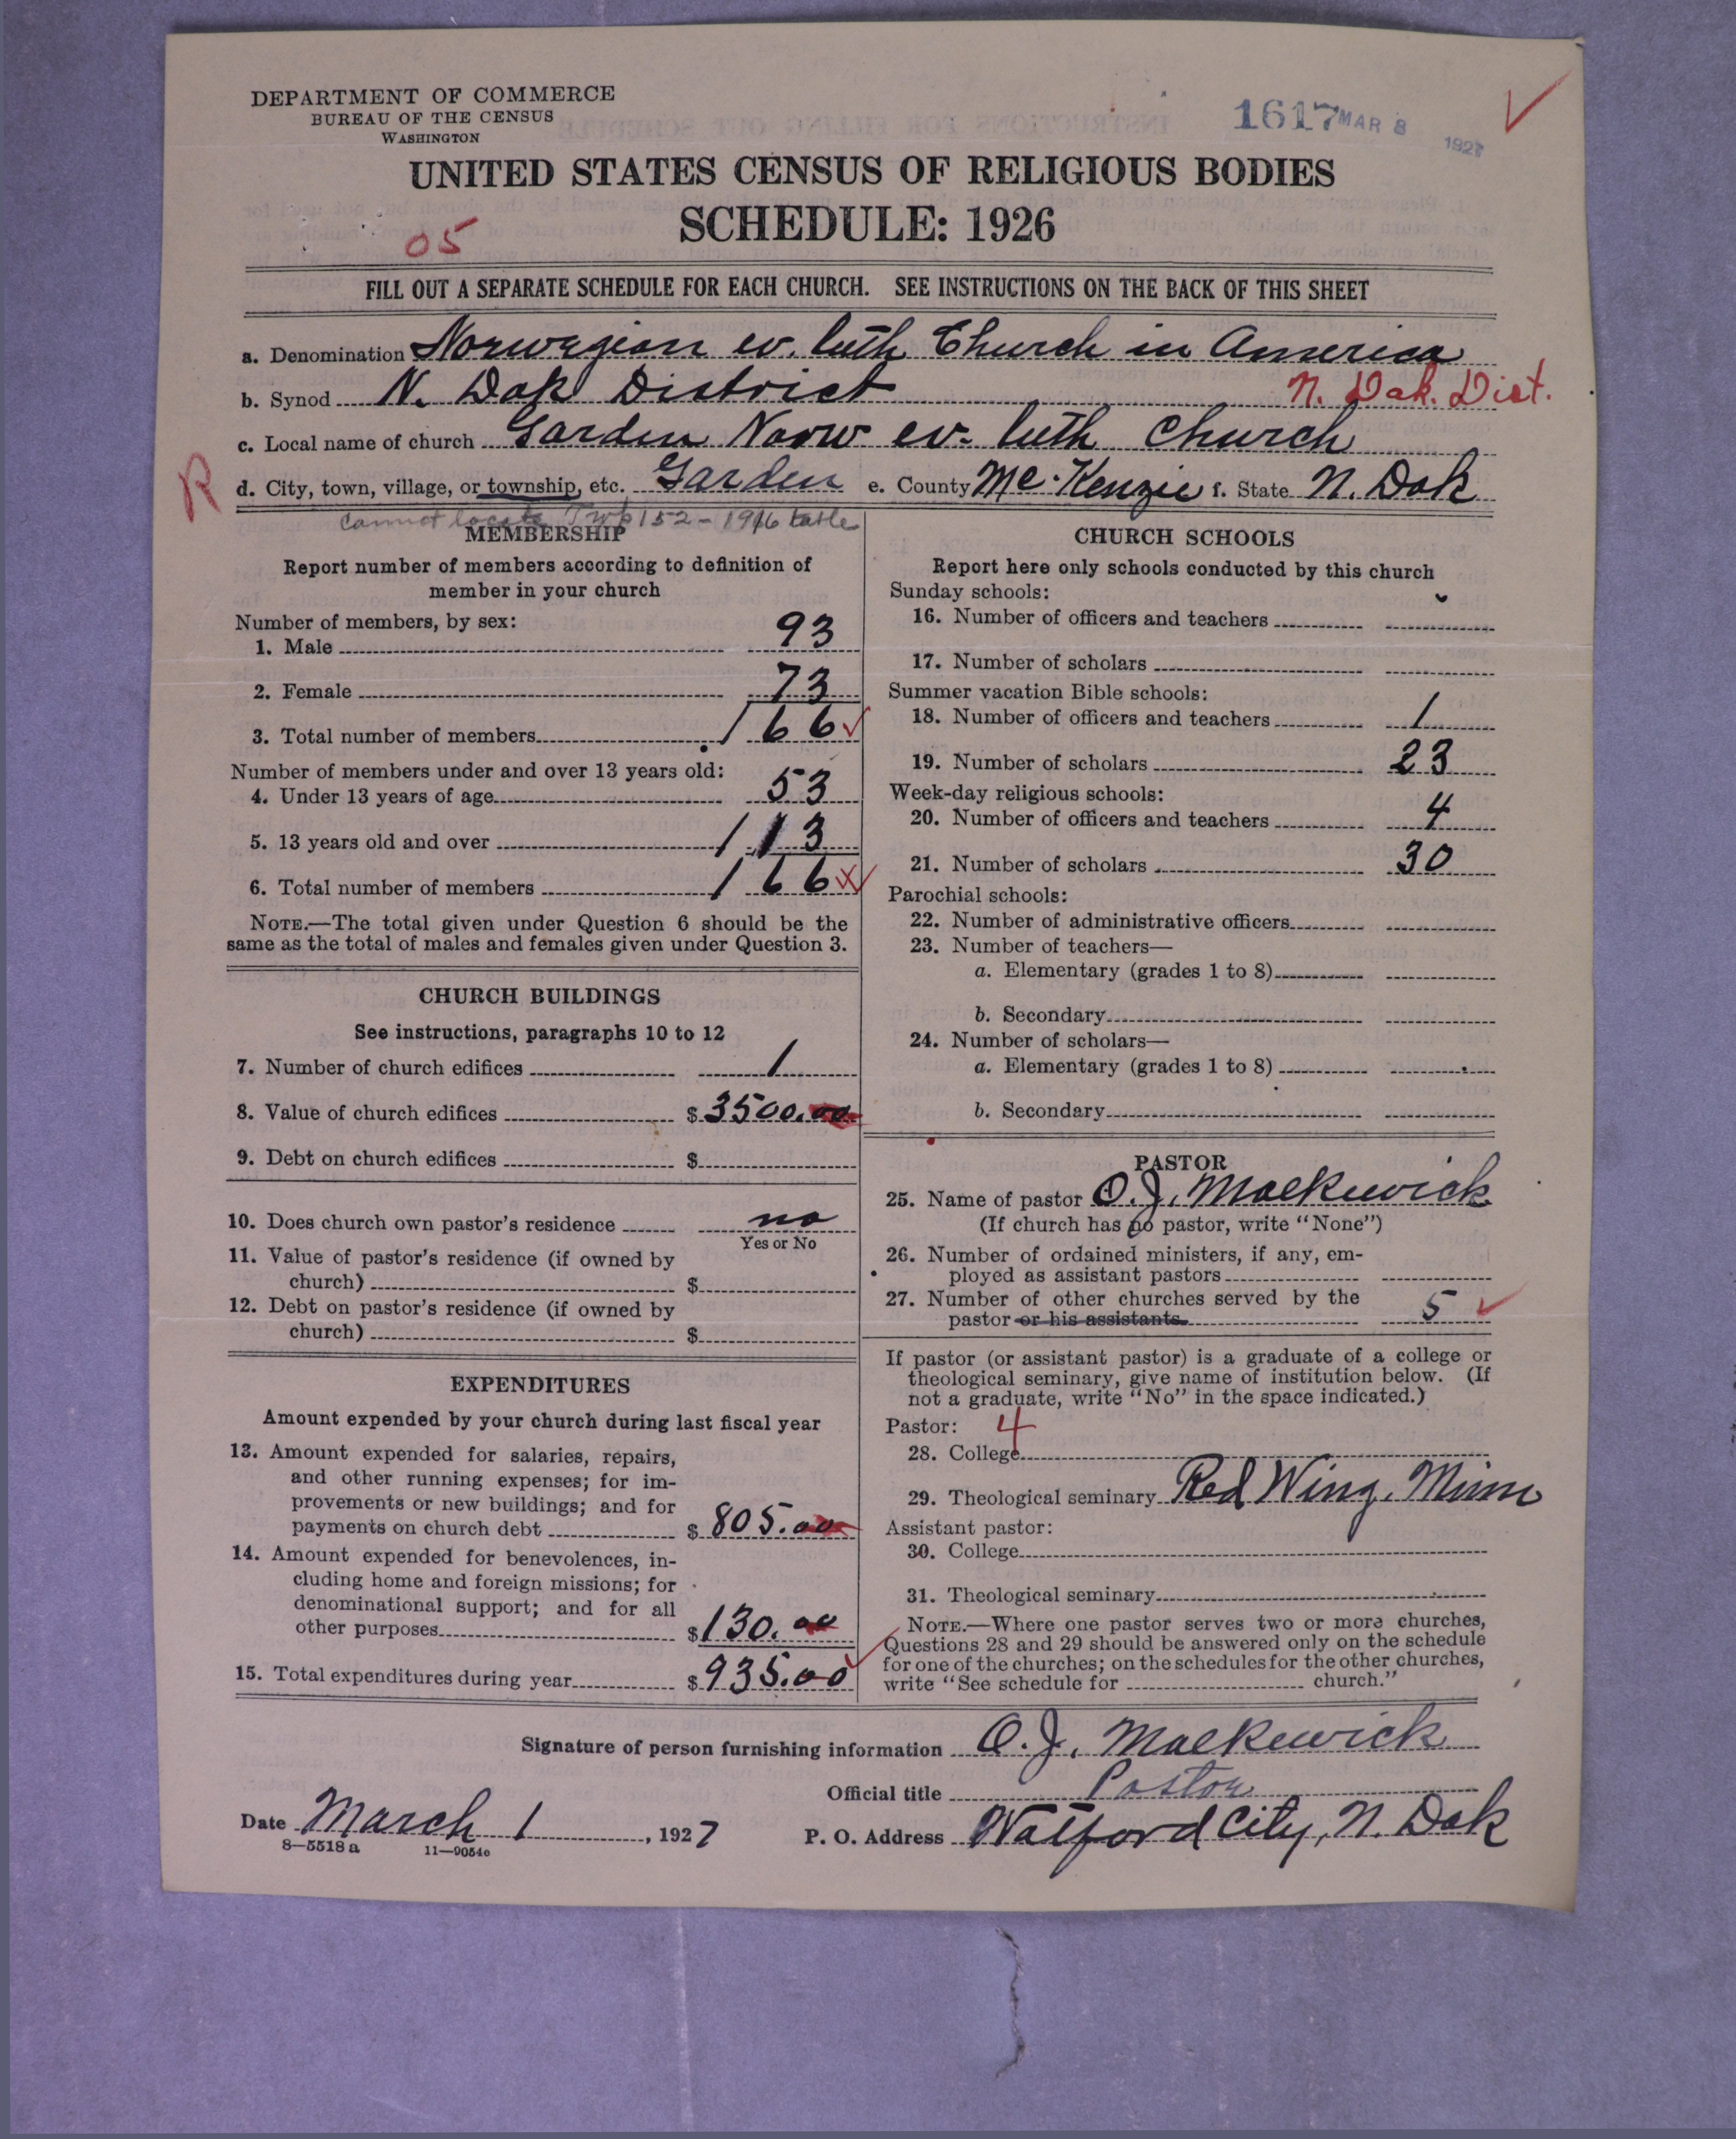 DEPARTMENT OF COMMERCE
BUREAU OF THE CENSUS
WASHINGTON
1617 MAR 8 1927
UNITED STATES CENSUS OF RELIGIOUS BODIES
SCHEDULE: 1926
05
FILL OUT A SEPARATE SCHEDULE FOR EACH CHURCH. SEE INSTRUCTIONS ON THE BACK OF THIS SHEET
a. Denomination Norwegian ev. luth Church in America
b. Synod N. Dak District N. Dak. Dist.
c. Local name of church Garden Norw ev. luth Church
R
d. City, town, village, or township, etc. Garden e. County McKenzie f. State N. Dak
Cannot locate Twp 152 - 1916 table
MEMBERSHIP
Report number of members according to definition of
member in your church
Number of members, by sex:
1. Male 93
2. Female 73
3. Total number of members 166
Number of members under and over 13 years old:
4. Under 13 years of age 53
5. 13 years old and over 113
6. Total number of members 166
NOTE.—The total given under Question 6 should be the
same as the total of males and females given under Question 3.
CHURCH BUILDINGS
See instructions, paragraphs 10 to 12
7. Number of church edifices 1
8. Value of church edifices $ 3500.00
9. Debt on church edifices $
10. Does church own pastor's residence no
Yes or No
11. Value of pastor's residence (if owned by
church) $
12. Debt on pastor's residence (if owned by
church) $
EXPENDITURES
Amount expended by your church during last fiscal year
13. Amount expended for salaries, repairs,
and other running expenses; for im-
provements or new buildings; and for
payments on church debt $ 805.00
14. Amount expended for benevolences, in-
cluding home and foreign missions; for
denominational support; and for all
other purposes $ 130.00
15. Total expenditures during year $ 935.00
CHURCH SCHOOLS
Report here only schools conducted by this church
Sunday schools:
16. Number of officers and teachers
17. Number of scholars
Summer vacation Bible schools:
18. Number of officers and teachers 1
19. Number of scholars 23
Week-day religious schools:
20. Number of officers and teachers 4
21. Number of scholars 30
Parochial schools:
22. Number of administrative officers
23. Number of teachers—
a. Elementary (grades 1 to 8)
b. Secondary
24. Number of scholars—
a. Elementary (grades 1 to 8)
b. Secondary
PASTOR
25. Name of pastor O. J. Malkewick
(If church has no pastor, write "None")
26. Number of ordained ministers, if any, em-
ployed as assistant pastors
27. Number of other churches served by the
pastor or his assistants 5
If pastor (or assistant pastor) is a graduate of a college or
theological seminary, give name of institution below. (If
not a graduate, write "No" in the space indicated.)
Pastor: 4
28. College
29. Theological seminary Red Wing, Minn
Assistant pastor:
30. College
31. Theological seminary
NOTE.—Where one pastor serves two or more churches,
Questions 28 and 29 should be answered only on the schedule
for one of the churches; on the schedules for the other churches,
write "See schedule for church."
Signature of person furnishing information O. J. Malkewick
Official title Pastor
Date March 1, 1927 P. O. Address Watford City, N. Dak
8—5518 a 11—9054c